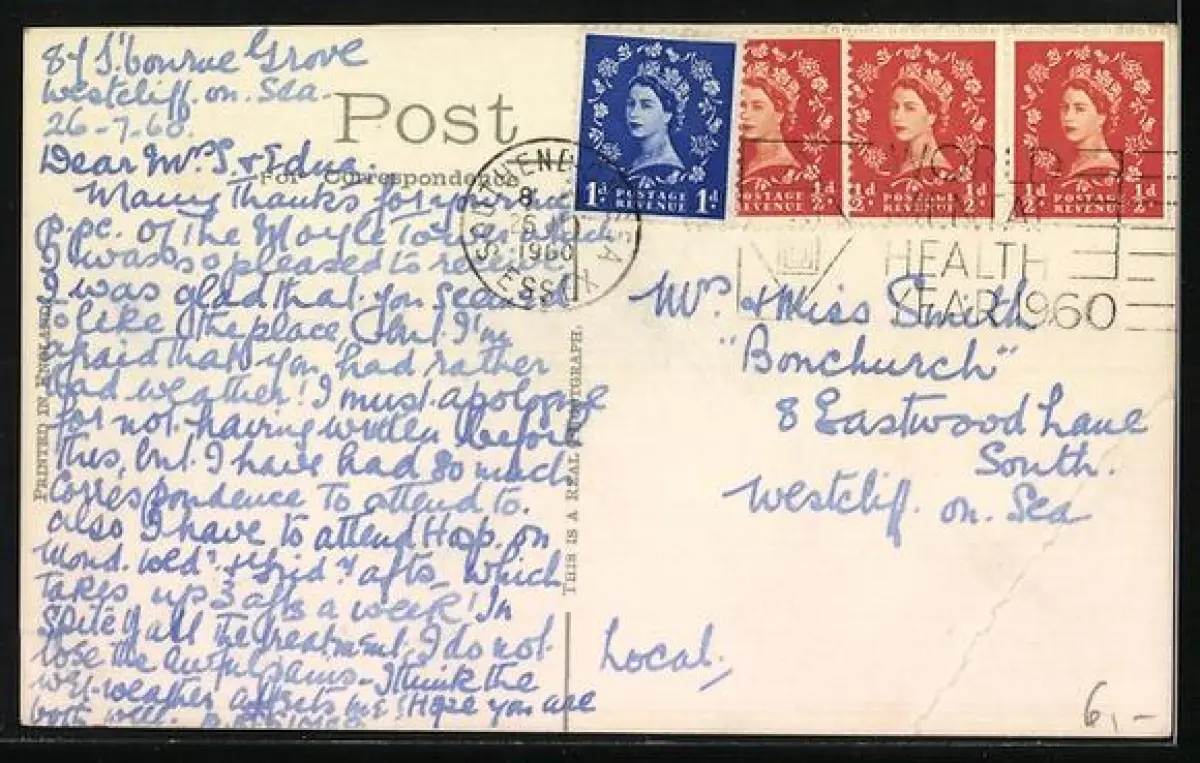 S'bourne Grove
Westcliff. on. Sea.
26-7-60.
Post
Dear Mrs. S. & Edna.
For Correspondence
Many thanks for your
p.pc. of the Moyle Tower which
I was so pleased to receive.
I was glad that you seemed
to like the place, but I'm
afraid that you had rather
bad weather! I must apologise
for not having written before
this, but I have had so much
correspondence to attend to.
also I have to attend Hosp. on
Mond. Wed? & Frid.y afts, which
takes up 3 afts a week! In
Spite of all the treatment, I do not
lose the awful pains - I think the
wet weather affects me! Hope you are
both well.
PRINTED IN ENGLAND
THIS IS A REAL PHOTOGRAPH.
1D POSTAGE REVENUE 1D
POSTAGE REVENUE ½D
½D POSTAGE REVENUE ½D
½D POSTAGE REVENUE ½D
SOUTHEND-ON-SEA
8
1960
ESSEX
WORLD
MENTAL
HEALTH
YEAR 1960
Mrs & Miss Smith
"Bonchurch"
8 Eastwood Lane
South.
Westcliff. on. Sea
Local.
6,-